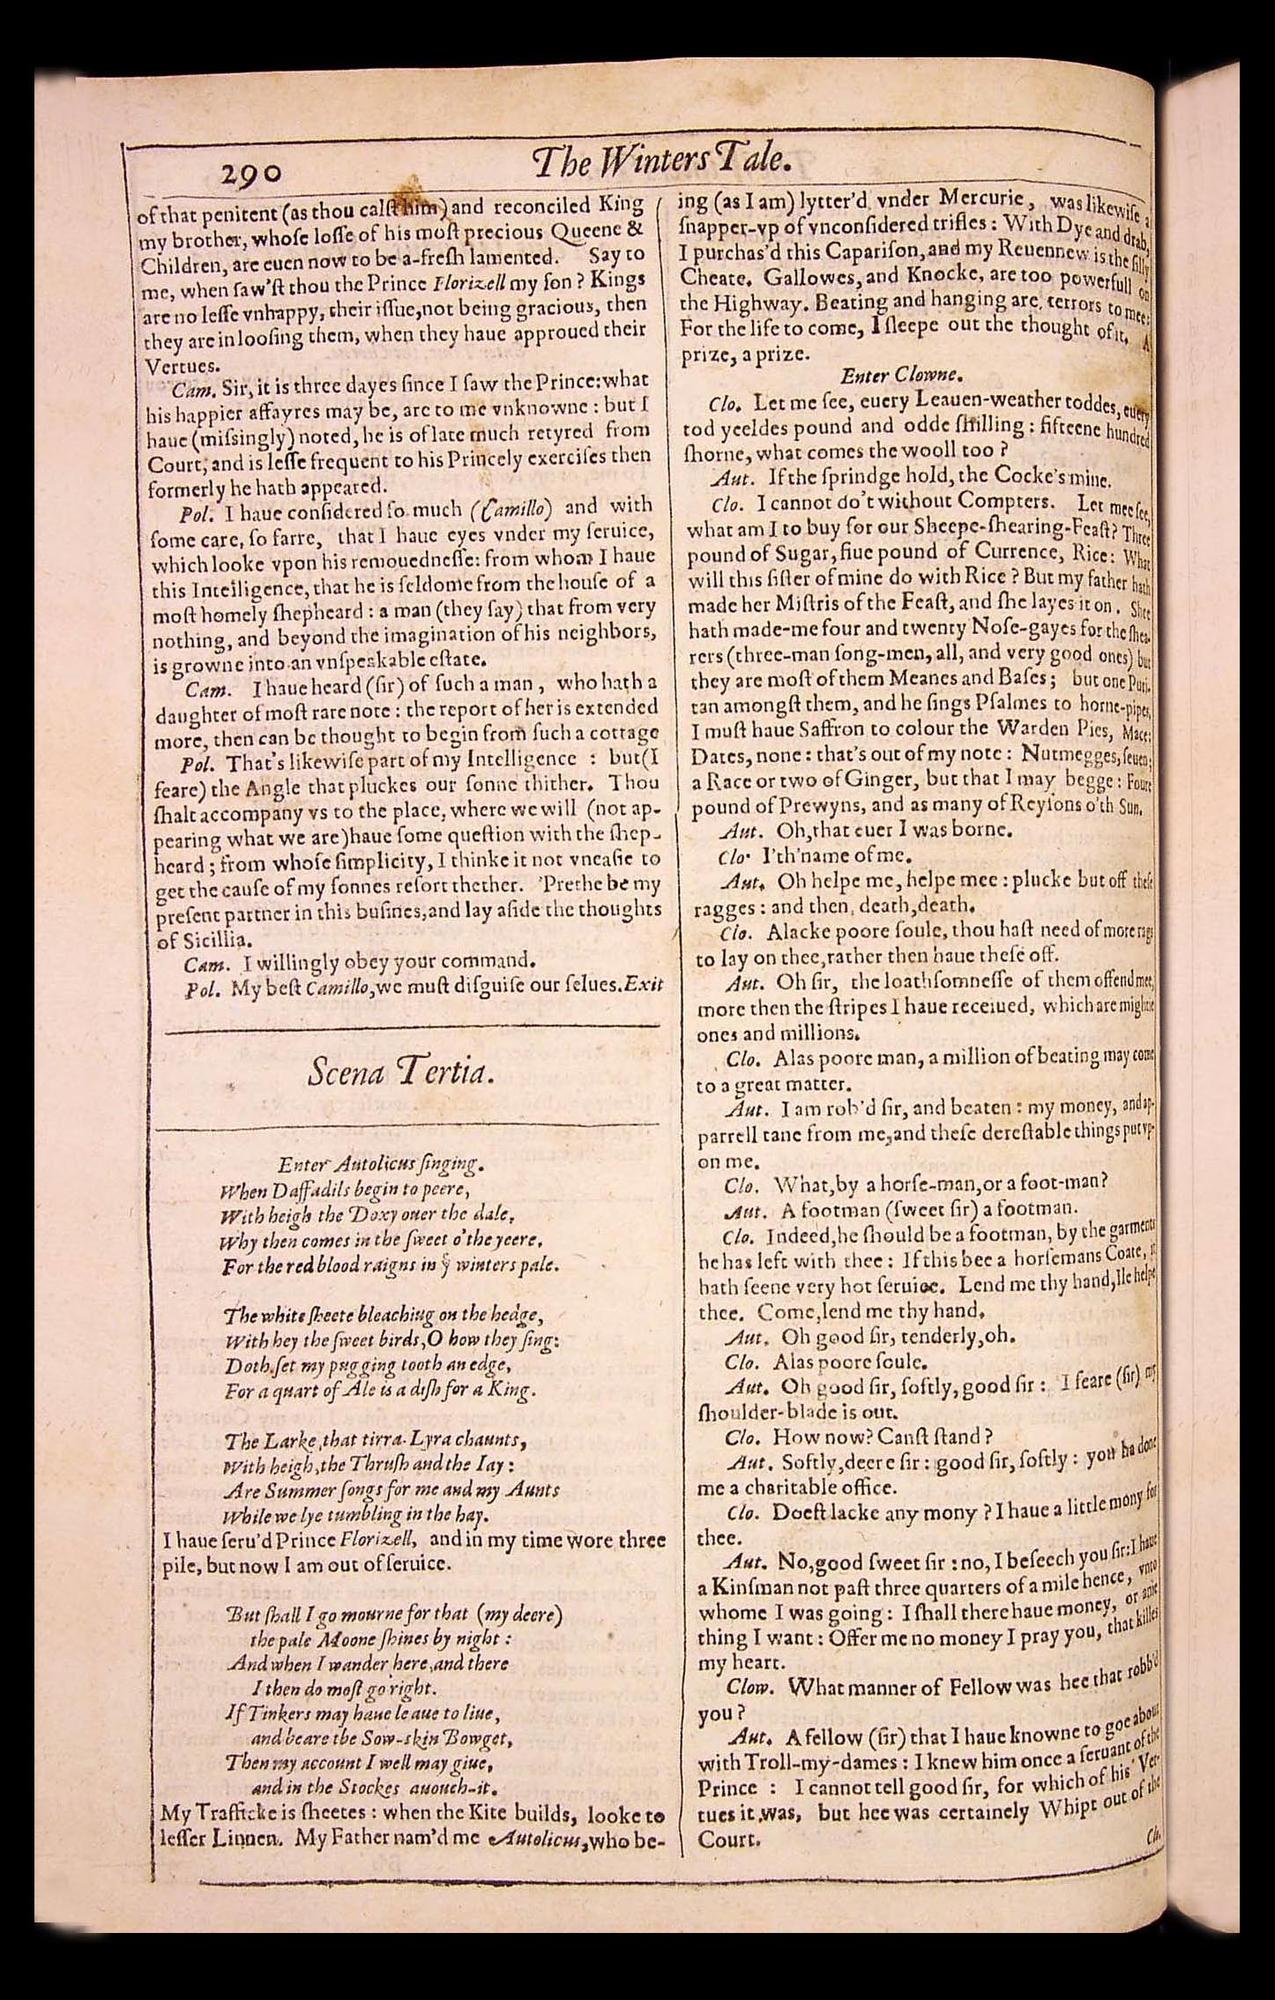 290
The Winters Tale.
of that penitent (as thou calſt him) and reconciled King
my brother, whoſe loſſe of his moſt precious Queene &
Children, are euen now to be a-freſh lamented. Say to
me, when ſaw'ſt thou the Prince Florizell my ſon? Kings
are no leſſe vnhappy, their iſſue, not being gracious, then
they are in looſing them, when they haue approued their
Vertues.
Cam. Sir, it is three dayes ſince I ſaw the Prince: what
his happier affayres may be, are to me vnknowne : but I
haue (miſsingly) noted, he is of late much retyred from
Court, and is leſſe frequent to his Princely exerciſes then
formerly he hath appeared.
Pol. I haue conſidered ſo much (Camillo) and with
ſome care, ſo farre, that I haue eyes vnder my ſeruice,
which looke vpon his remouedneſſe: from whom I haue
this Intelligence, that he is ſeldome from the houſe of a
moſt homely ſhepheard : a man (they ſay) that from very
nothing, and beyond the imagination of his neighbors,
is growne into an vnſpeakable eſtate.
Cam. I haue heard (ſir) of ſuch a man, who hath a
daughter of moſt rare note : the report of her is extended
more, then can be thought to begin from ſuch a cottage
Pol. That's likewiſe part of my Intelligence : but (I
feare) the Angle that pluckes our ſonne thither. Thou
ſhalt accompany vs to the place, where we will (not ap-
pearing what we are) haue ſome queſtion with the ſhep-
heard ; from whoſe ſimplicity, I thinke it not vneaſie to
get the cauſe of my ſonnes reſort thether. 'Prethe be my
preſent partner in this buſines, and lay aſide the thoughts
of Sicillia.
Cam. I willingly obey your command.
Pol. My beſt Camillo, we muſt diſguiſe our ſelues. Exit
Scena Tertia.
Enter Autolicus ſinging.
When Daffadils begin to peere,
With heigh the Doxy ouer the dale,
Why then comes in the ſweet o'the yeere,
For the red blood raigns in yͤ winters pale.
The white ſheete bleaching on the hedge,
With hey the ſweet birds, O how they ſing:
Doth ſet my pugging tooth an edge,
For a quart of Ale is a diſh for a King.
The Larke, that tirra-Lyra chaunts,
With heigh, the Thruſh and the Iay :
Are Summer ſongs for me and my Aunts
While we lye tumbling in the hay.
I haue ſeru'd Prince Florizell, and in my time wore three
pile, but now I am out of ſeruice.
But ſhall I go mourne for that (my deere)
the pale Moone ſhines by night :
And when I wander here, and there
I then do moſt go right.
If Tinkers may haue leaue to liue,
and beare the Sow-skin Bowget,
Then my account I well may giue,
and in the Stockes auouch-it.
My Trafficke is ſheetes : when the Kite builds, looke to
leſſer Linnen. My Father nam'd me Autolicus, who be-
ing (as I am) lytter'd vnder Mercurie, was likewiſe a
ſnapper-vp of vnconſidered trifles : With Dye and drab,
I purchas'd this Capariſon, and my Reuennew is the ſilly
Cheate. Gallowes, and Knocke, are too powerfull on
the Highway. Beating and hanging are terrors to mee:
For the life to come, I ſleepe out the thought of it. A
prize, a prize.
Enter Clowne.
Clo. Let me ſee, euery Leauen-weather toddes, euery
tod yeeldes pound and odde ſhilling : fifteene hundred
ſhorne, what comes the wooll too ?
Aut. If the ſprindge hold, the Cocke's mine.
Clo. I cannot do't without Compters. Let mee ſee,
what am I to buy for our Sheepe-ſhearing-Feaſt? Three
pound of Sugar, fiue pound of Currence, Rice : What
will this ſiſter of mine do with Rice ? But my father hath
made her Miſtris of the Feaſt, and ſhe layes it on. Shee
hath made-me four and twenty Noſe-gayes for the ſhea-
rers (three-man ſong-men, all, and very good ones) but
they are moſt of them Meanes and Baſes ; but one Puri-
tan amongſt them, and he ſings Pſalmes to horne-pipes,
I muſt haue Saffron to colour the Warden Pies, Mace;
Dates, none : that's out of my note : Nutmegges, ſeuen;
a Race or two of Ginger, but that I may begge : Foure
pound of Prewyns, and as many of Reyſons o'th Sun.
Aut. Oh, that euer I was borne.
Clo. I'th'name of me.
Aut. Oh helpe me, helpe mee : plucke but off theſe
ragges : and then, death, death.
Clo. Alacke poore ſoule, thou haſt need of more rags
to lay on thee, rather then haue theſe off.
Aut. Oh ſir, the loathſomneſſe of them offend mee,
more then the ſtripes I haue receiued, which are mightie
ones and millions.
Clo. Alas poore man, a million of beating may come
to a great matter.
Aut. I am rob'd ſir, and beaten : my money, and ap-
parrell tane from me, and theſe deteſtable things put vp-
on me.
Clo. What, by a horſe-man, or a foot-man?
Aut. A footman (ſweet ſir) a footman.
Clo. Indeed, he ſhould be a footman, by the garments
he has left with thee : If this bee a horſemans Coate, it
hath ſeene very hot ſeruice. Lend me thy hand, Ile helpe
thee. Come, lend me thy hand.
Aut. Oh good ſir, tenderly, oh.
Clo. Alas poore ſoule.
Aut. Oh good ſir, ſoftly, good ſir : I feare (ſir) my
ſhoulder-blade is out.
Clo. How now? Canſt ſtand ?
Aut. Softly, deere ſir : good ſir, ſoftly : you ha done
me a charitable office.
Clo. Doeſt lacke any mony ? I haue a little mony for
thee.
Aut. No, good ſweet ſir : no, I beſeech you ſir: I haue
a Kinſman not paſt three quarters of a mile hence, vnto
whome I was going : I ſhall there haue money, or anie
thing I want : Offer me no money I pray you, that killes
my heart.
Clow. What manner of Fellow was hee that robb'd
you ?
Aut. A fellow (ſir) that I haue knowne to goe about
with Troll-my-dames : I knew him once a ſeruant of the
Prince : I cannot tell good ſir, for which of his Ver-
tues it was, but hee was certainely Whipt out of the
Court.
Clo.